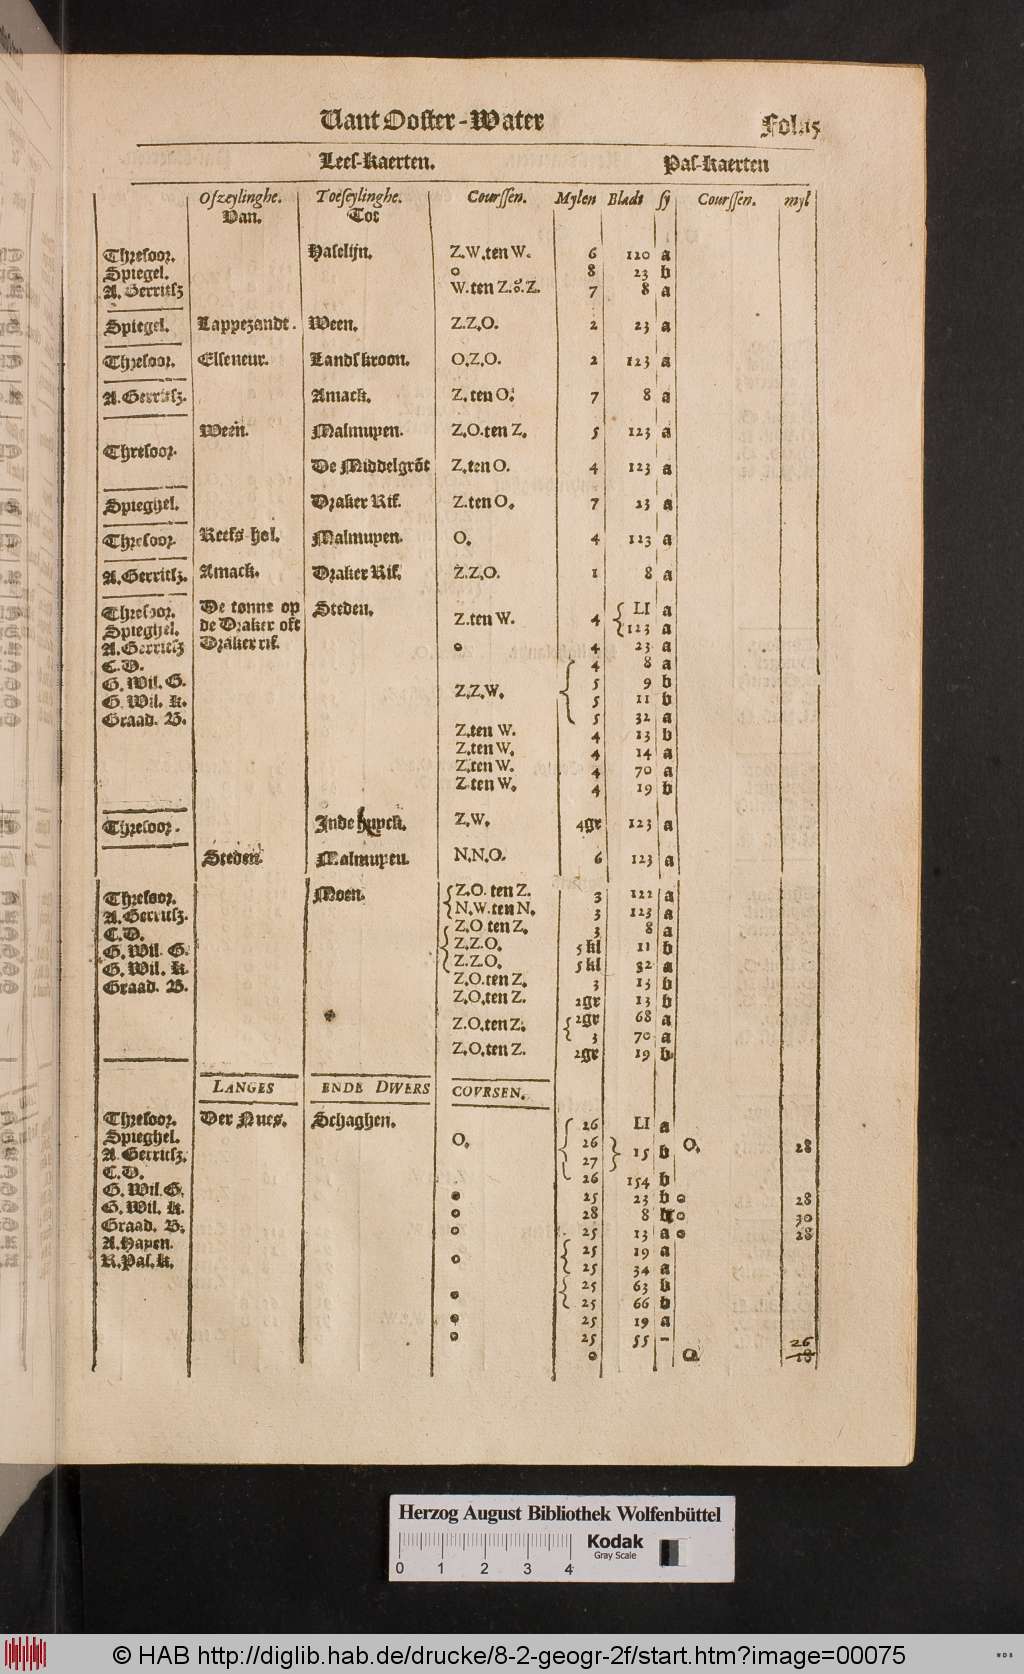 Vant Ooster-Water Fol.
Lees-kaerten. Pas-kaerten
Ofzeylinghe. Toeseylinghe. Courssen. Mylen Bladt sy Courssen. myl
Van. Tot
Thresoor. Haselijn. Z.W.ten W. 6 120 a
Spiegel. o 8 23 b
A. Gerritsz W.ten Z. Z. 7 8 a
Spiegel. Lappezandt. Ween. Z.Z.O. 2 23 a
Thresoor. Elseneur. Landskroon. O.Z.O. 2 123 a
A.Gerritsz. Amack. Z.ten O. 7 8 a
Ween. Malmuyen. Z.O.ten Z. 5 123 a
Thresoor.
De Middelgrōt Z.ten O. 4 123 a
Spieghel. Draker Rif. Z.ten O. 7 23 a
Thresoor. Keefs-hol. Malmuyen. O. 4 123 a
A.Gerritsz. Amack. Draker Rif. Z.Z.O. 1 8 a
Thresoor. De tonne op Steden. { LI a
Z.ten W. 4
Spieghel. de Draker oft 123 a
A. Gerritsz Draker rif. o 4 23 a
C.D. { 4 8 a
G. Wil. G. Z.Z.W. 5 9 b
G. Wil. K. 5 11 b
Graad. B. 5 32 a
Z.ten W. 4 13 b
Z.ten W. 4 14 a
Z.ten W. 4 70 a
Z.ten W. 4 19 b
Thresoor. Inde huyck. Z.W. 4gr 123 a
Steden. Malmuyen. N.N.O. 6 123 a
Thresoor. Moen. { Z.O. ten Z. 3 122 a
A.Gerritsz. N.W.ten N. 3 123 a
C.D. { Z.O ten Z. 3 8 a
G. Wil. G. Z.Z.O. 5 kl 11 b
G. Wil. K. Z.Z.O. 5 kl 32 a
Graad. B. Z.O.ten Z. 3 13 b
Z.O.ten Z. 2gr 13 b
Z.O.ten Z. { 2gr 68 a
3 70 a
Z.O.ten Z. 2gr 19 b
LANGES ENDE DWERS COVRSEN.
Thresoor. Der Nues. Schaghen. { 26 LI a
Spieghel. O. 26 } 15 b O. 28
A. Gerritsz. 27
C.D. 26 154 b
G. Wil. G. o 25 23 b o 28
G. Wil. K. o 28 8 b o 30
Graad. B. o 25 13 a o 28
A.Hayen. { 25 19 a
R.Pas.k. o 25 34 a
{ 25 63 b
o 25 66 b
o 25 19 a
o 25 55 - 26
o O 28
Herzog August Bibliothek Wolfenbüttel
Kodak
Gray Scale
0 1 2 3 4
© HAB http://diglib.hab.de/drucke/8-2-geogr-2f/start.htm?image=00075